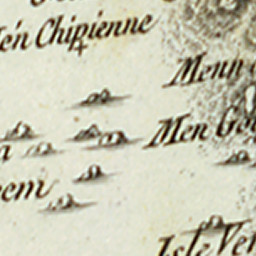 Mén Chipienne
Menn
Men Ge
eem
Isle Ver